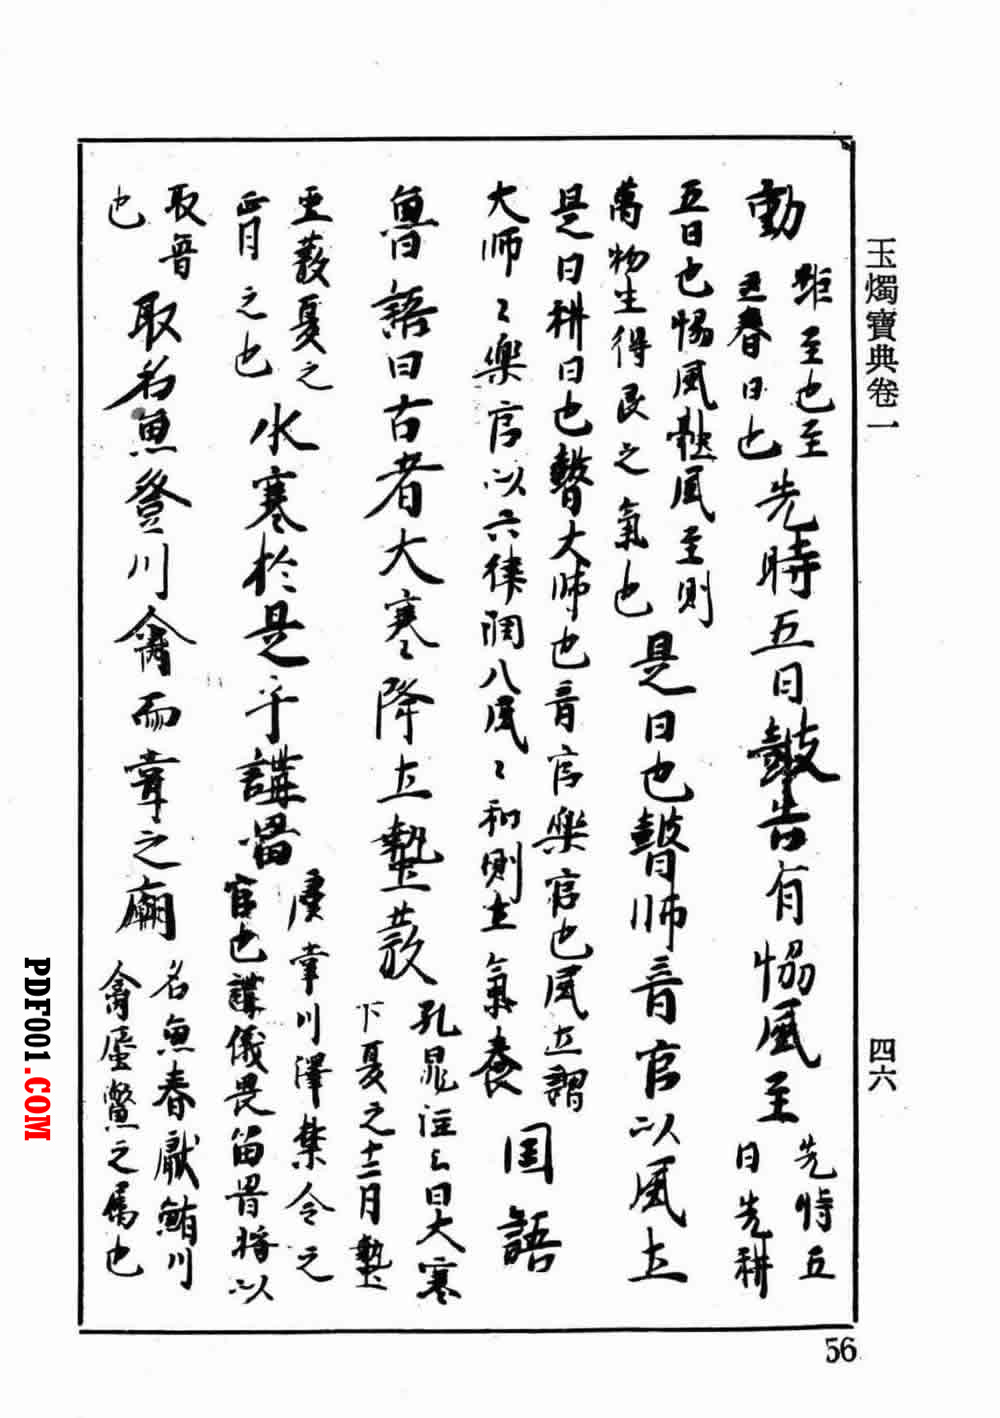 玉燭寶典卷一
四六
動 距至也至立春日也 先時五日鼓告有協風至 先時五日先耕
五日也惕風融風至則萬物生得艮之氣也 是日也瞽師音官以風土
是日耕日也瞽大師也音官樂官也風土謂
大師〻樂官以六律調八風〻和則土氣養 国語
魯語曰古者大寒降立蟄蔉 孔晁注云曰大寒下夏之十二月蟄
至蔉夏之正月之也 水寒於是乎講罶 虞韋川澤禁令之官也講儀畏笛罟將以
取魚也 取名魚登川禽而韋之廟 名魚春献鮪川禽蜃鱉之属也
56
PDF001.COM